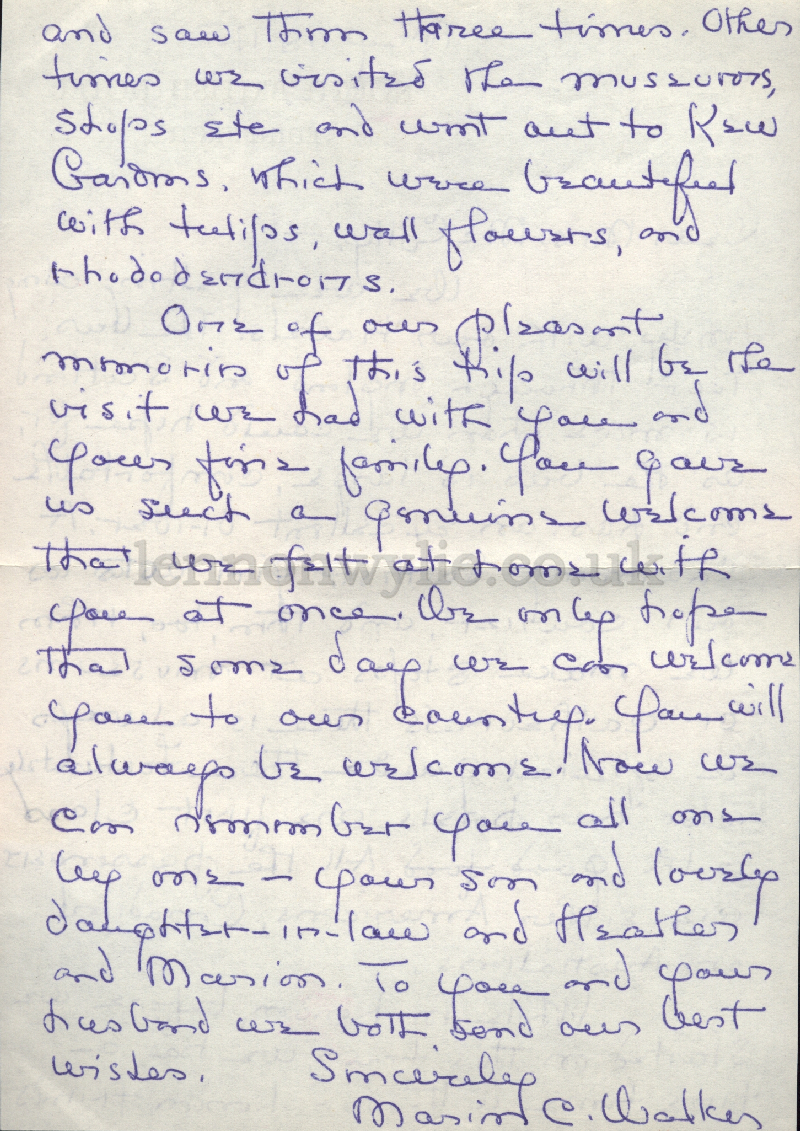 and saw them three times. Other
times we visited the museums,
shops etc and went out to Kew
Gardens, which were beautiful
with tulips, wall flowers, and
rhododendrons.
One of our pleasant
memories of this trip will be the
visit we had with you and
your fine family. You gave
us such a genuine welcome
that we felt at home with
lennonwylie.co.uk
you at once. We only hope
that some day we can welcome
you to our country. You will
always be welcome. Now we
can remember you all one
by one – your son and lovely
daughter-in-law and Heather
and Marion. To you and your
husband we both send our best
wishes. Sincerely
Marion C. Walker